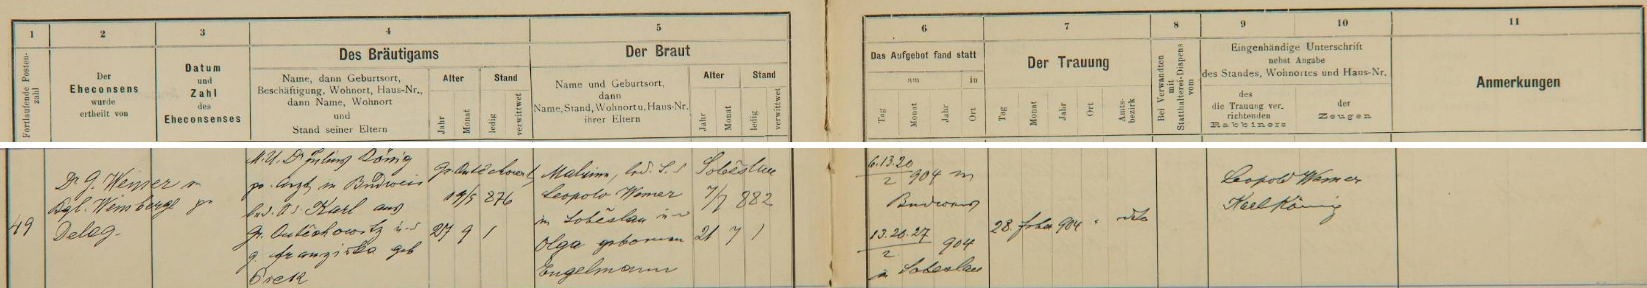 1 2 3 4 5
Fortlaufende Posten-
zahl
Der
Eheconsens
wurde
ertheilt von
Datum
und
Zahl
des
Eheconsenses
Des Bräutigams
Name, dann Geburtsort,
Beschäftigung, Wohnort, Haus-Nr.,
dann Name, Wohnort
und
Stand seiner Eltern
Alter
Jahr
Monat
Stand
ledig
verwittwet
Der Braut
Name und Geburtsort,
dann
Name, Stand, Wohnort u. Haus-Nr.
ihrer Eltern
Alter
Jahr
Monat
Stand
ledig
verwittwet
6 7 8 9 10 11
Das Aufgebot fand statt
am
in
Tag
Monat
Jahr
Ort
Der Trauung
Tag
Monat
Jahr
Ort
Amts-
bezirk
Bei Verwandten
mit
Statthalterei-Dispens
vom
Eingenhändige Unterschrift
nebst Angabe
des Standes, Wohnortes und Haus-Nr.
des
die Trauung ver.
richtenden
Rabbiners
der
Zeugen
Anmerkungen
49
Dr G. Wemer
Dgl. Weinberge
Deleg.
M.U. Dr Julius König
in Budweis
Karl aus
geb
27 9 1
19/5 876
Malvine,
Leopold Wemer
in Soběslau
Olga geborenen
Engelmann
Soběslau
7/7 882
21 7 1
6.13.20
2 904 in
Budweis
13.20.27
2 904
in Soběslau
28. 904
Leopold Wemer
Karl König